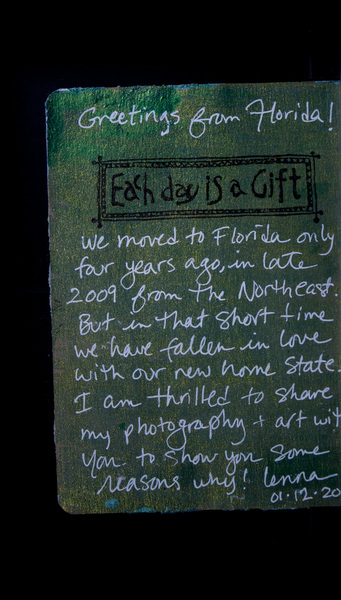 Greetings from Florida!
Each day is a Gift
We moved to Florida only
four years ago, in late
2009 from the Northeast.
But in that short time
we have fallen in love
with our new home state.
I am thrilled to share
my photography + art wit
you to show you some
reasons why! Lenna
01.12.20